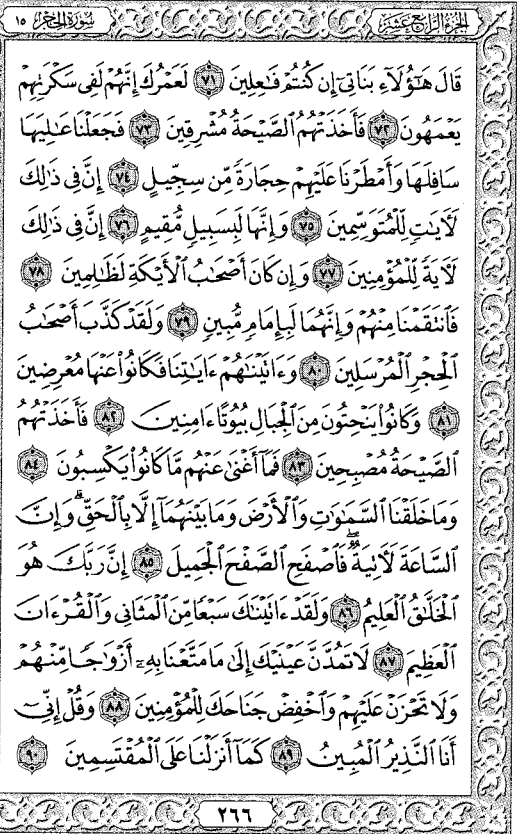 الجزء الرابع عشر
سورة الحجر ١٥
قَالَ هَٰٓؤُلَآءِ بَنَاتِيٓ إِن كُنتُمۡ فَٰعِلِينَ ٧١ لَعَمۡرُكَ إِنَّهُمۡ لَفِي سَكۡرَتِهِمۡ
يَعۡمَهُونَ ٧٢ فَأَخَذَتۡهُمُ ٱلصَّيۡحَةُ مُشۡرِقِينَ ٧٣ فَجَعَلۡنَا عَٰلِيَهَا
سَافِلَهَا وَأَمۡطَرۡنَا عَلَيۡهِمۡ حِجَارَةٗ مِّن سِجِّيلٍ ٧٤ إِنَّ فِي ذَٰلِكَ
لَأٓيَٰتٖ لِّلۡمُتَوَسِّمِينَ ٧٥ وَإِنَّهَا لَبِسَبِيلٖ مُّقِيمٍ ٧٦ إِنَّ فِي ذَٰلِكَ
لَأٓيَةٗ لِّلۡمُؤۡمِنِينَ ٧٧ وَإِن كَانَ أَصۡحَٰبُ ٱلۡأَيۡكَةِ لَظَٰلِمِينَ ٧٨
فَٱنتَقَمۡنَا مِنۡهُمۡ وَإِنَّهُمَا لَبِإِمَامٖ مُّبِينٖ ٧٩ وَلَقَدۡ كَذَّبَ أَصۡحَٰبُ
ٱلۡحِجۡرِ ٱلۡمُرۡسَلِينَ ٨٠ وَءَاتَيۡنَٰهُمۡ ءَايَٰتِنَا فَكَانُواْ عَنۡهَا مُعۡرِضِينَ
٨١ وَكَانُواْ يَنۡحِتُونَ مِنَ ٱلۡجِبَالِ بُيُوتًا ءَامِنِينَ ٨٢ فَأَخَذَتۡهُمُ
ٱلصَّيۡحَةُ مُصۡبِحِينَ ٨٣ فَمَآ أَغۡنَىٰ عَنۡهُم مَّا كَانُواْ يَكۡسِبُونَ ٨٤
وَمَا خَلَقۡنَا ٱلسَّمَٰوَٰتِ وَٱلۡأَرۡضَ وَمَا بَيۡنَهُمَآ إِلَّا بِٱلۡحَقِّۗ وَإِنَّ
ٱلسَّاعَةَ لَأٓتِيَةٞۖ فَٱصۡفَحِ ٱلصَّفۡحَ ٱلۡجَمِيلَ ٨٥ إِنَّ رَبَّكَ هُوَ
ٱلۡخَلَّٰقُ ٱلۡعَلِيمُ ٨٦ وَلَقَدۡ ءَاتَيۡنَٰكَ سَبۡعٗا مِّنَ ٱلۡمَثَانِي وَٱلۡقُرۡءَانَ
ٱلۡعَظِيمَ ٨٧ لَا تَمُدَّنَّ عَيۡنَيۡكَ إِلَىٰ مَا مَتَّعۡنَا بِهِۦٓ أَزۡوَٰجٗا مِّنۡهُمۡ
وَلَا تَحۡزَنۡ عَلَيۡهِمۡ وَٱخۡفِضۡ جَنَاحَكَ لِلۡمُؤۡمِنِينَ ٨٨ وَقُلۡ إِنِّيٓ
أَنَا ٱلنَّذِيرُ ٱلۡمُبِينُ ٨٩ كَمَآ أَنزَلۡنَا عَلَى ٱلۡمُقۡتَسِمِينَ ٩٠
٢٦٦